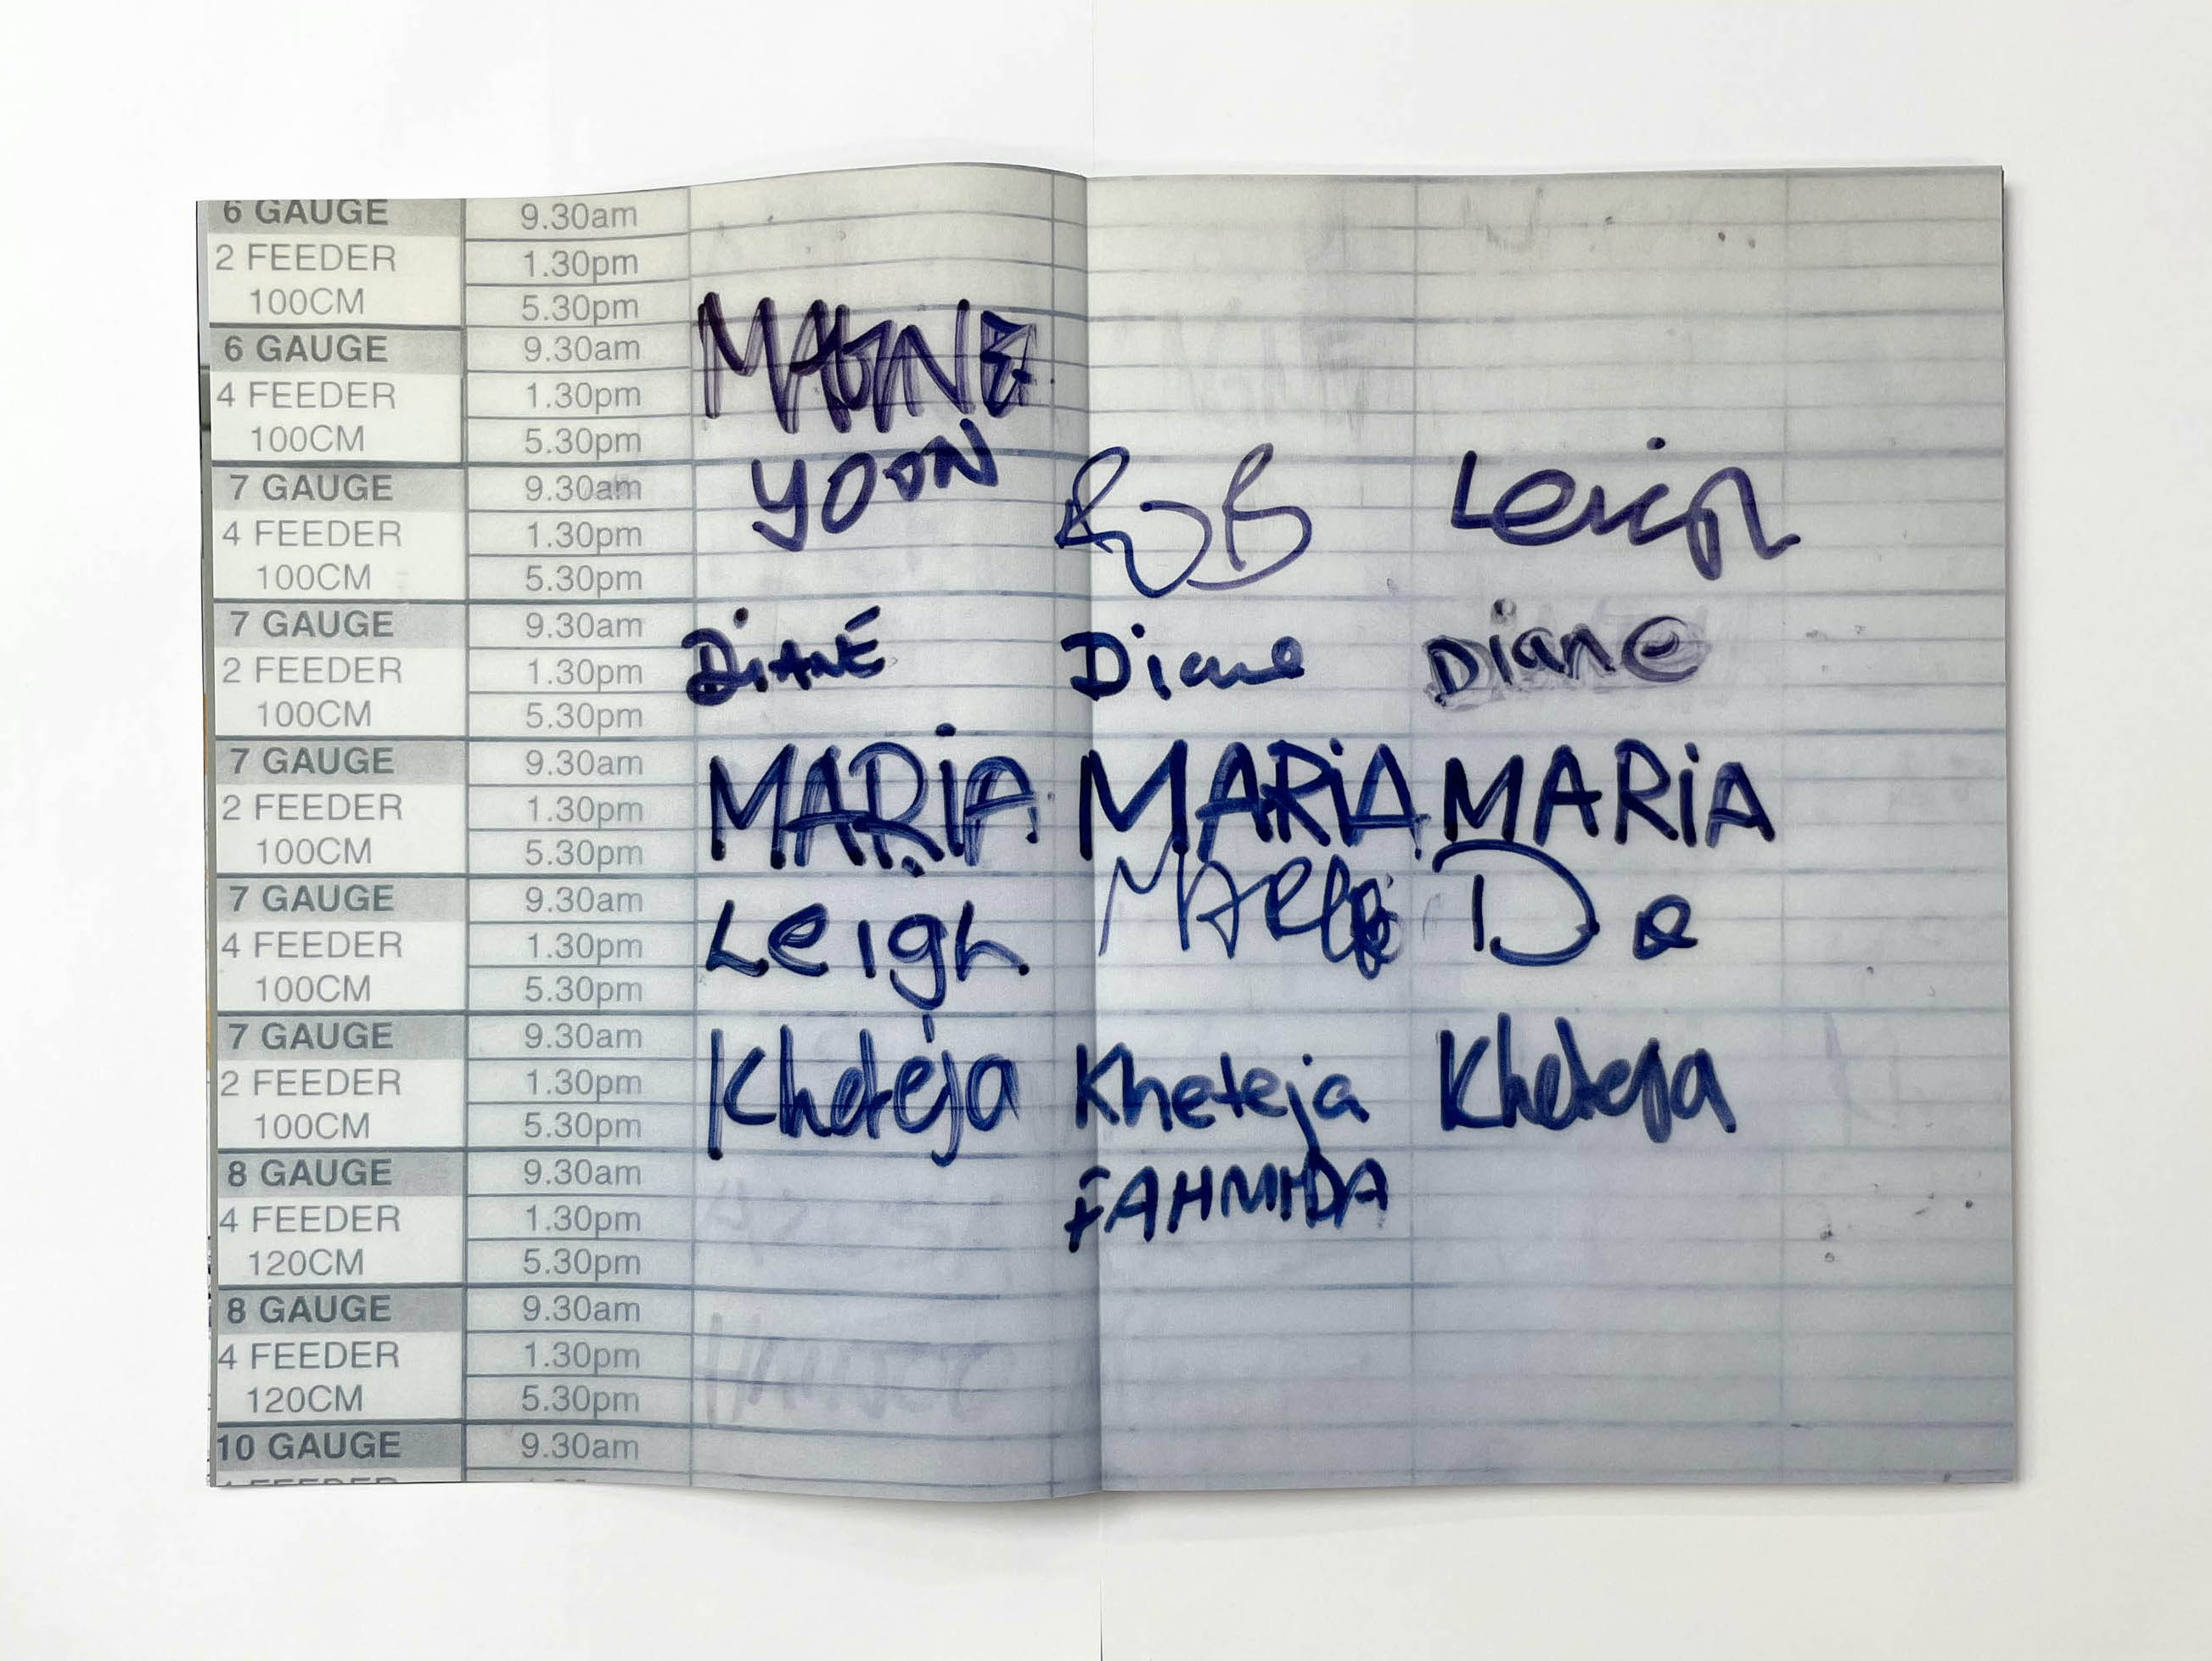 6 GAUGE 9.30am
2 FEEDER 1.30pm
100CM 5.30pm
6 GAUGE 9.30am MAGNE
4 FEEDER 1.30pm
100CM 5.30pm
7 GAUGE 9.30am YOON Rob Leigh
4 FEEDER 1.30pm
100CM 5.30pm
7 GAUGE 9.30am
2 FEEDER 1.30pm DiANE Diane DianE
100CM 5.30pm
7 GAUGE 9.30am
2 FEEDER 1.30pm MARiA MARiA MARiA
100CM 5.30pm
7 GAUGE 9.30am
4 FEEDER 1.30pm Leigh
100CM 5.30pm
7 GAUGE 9.30am
2 FEEDER 1.30pm Kheteja Kheteja Kheteja
100CM 5.30pm
8 GAUGE 9.30am
4 FEEDER 1.30pm FAHMIDA
120CM 5.30pm
8 GAUGE 9.30am
4 FEEDER 1.30pm
120CM 5.30pm
10 GAUGE 9.30am